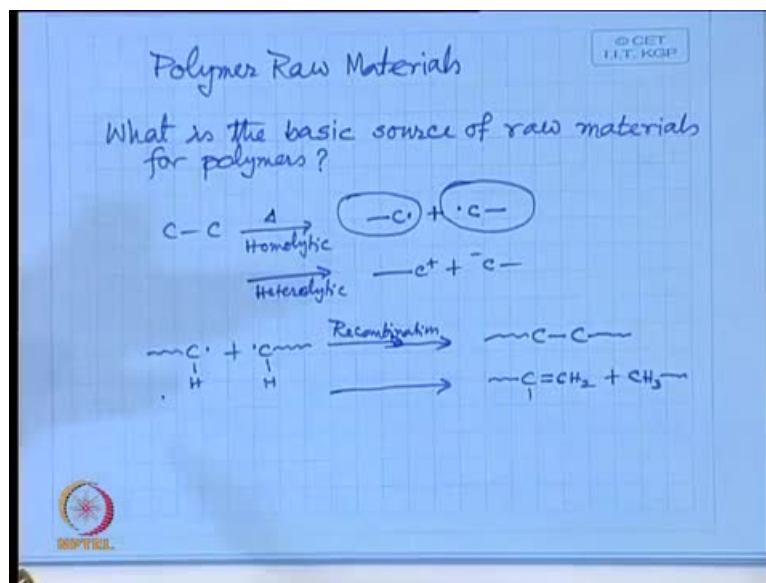 © CET
I.I.T. KGP
Polymer Raw Materials
What is the basic source of raw materials
for polymers?
C–C Δ Homolytic —C· + ·C—
Heterolytic —C⁺ + ⁻C—
~~C· + ·C~~ Recombination ~~C–C~~
H H
~~C=CH₂ + CH₃~~
NPTEL